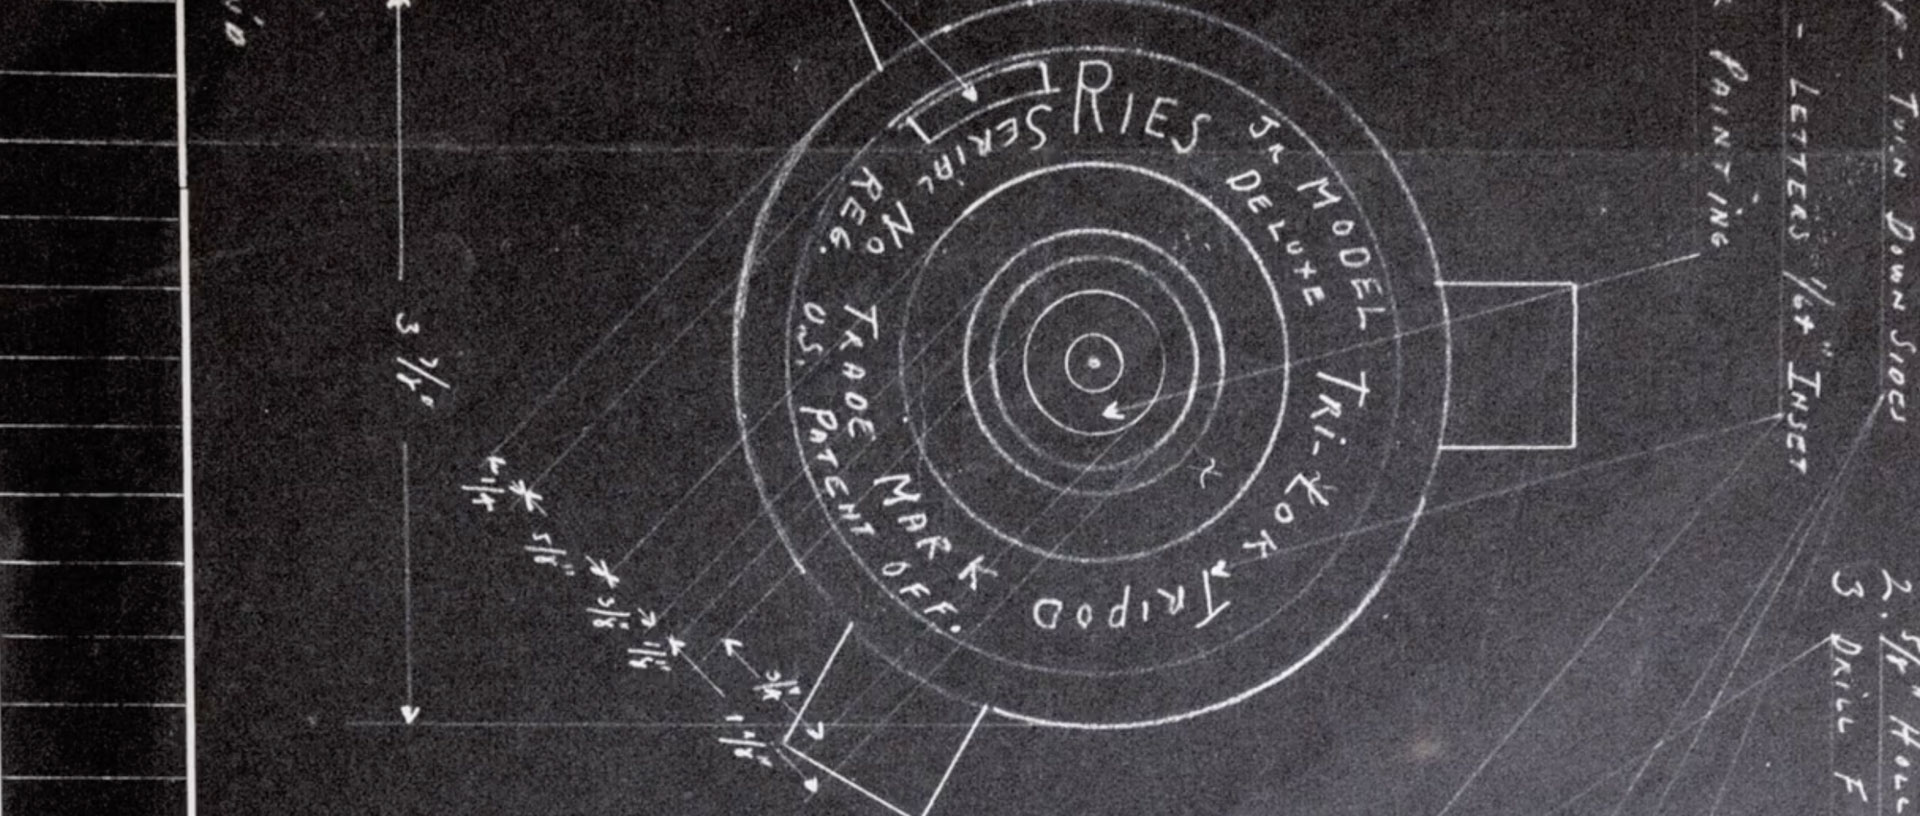 RIES
JR MODEL
DELUXE
TRI-LOK
TRIPOD
SERIAL NO
TRADE MARK
REG. U.S. PATENT OFF.
3 7/8"
1/4
5/8"
3/8"
1/8"
- TURN DOWN SIDES
- LETTERS 1/64" INSET
PAINTING
2. 5/8" HOLE
3 DRILL F